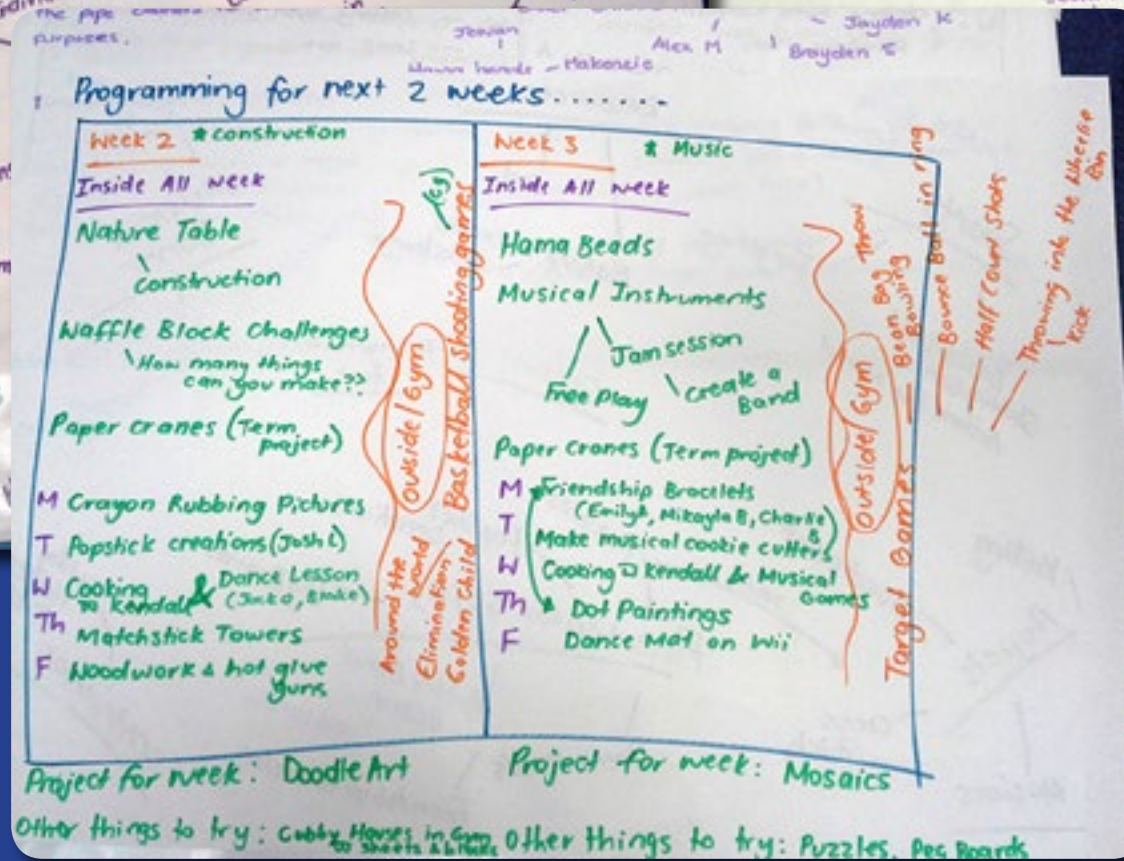 purposes.
Jeevan
Alex M
Jayden K
Brayden S
Makenzie
Programming for next 2 weeks.......
Week 2 * construction
Inside All week
Nature Table
construction
Waffle Block Challenges
How many things
can you make??
Paper cranes (Term
project)
M Crayon Rubbing Pictures
T Popstick creations (Josh L)
W Cooking & Dance Lesson
Kendall (Jack O, Blake)
Th Matchstick Towers
F Woodwork & hot glue
guns
Outside/Gym
Basketball shooting games
(eg)
Around the
world
Elimination
Golden Child
Project for week: Doodle Art
Other things to try: Cubby Houses in Gym
sheets & blocks
Week 3 * Music
Inside All week
Hama Beads
Musical Instruments
Jam session
Free play
create a
Band
Paper cranes (Term project)
M Friendship Bracelets
(Emily, Mikayla B, Charlie)
T Make musical cookie cutters
W Cooking Kendall & Musical
Games
Th Dot Paintings
F Dance Mat on Wii
Outside/Gym
Target Games
Bean Bag Throw
Bowling
Bounce Ball in ring
Half Court Shots
Throwing into the Wheelie
Bin
Kick
Project for week: Mosaics
Other things to try: Puzzles, Peg Boards